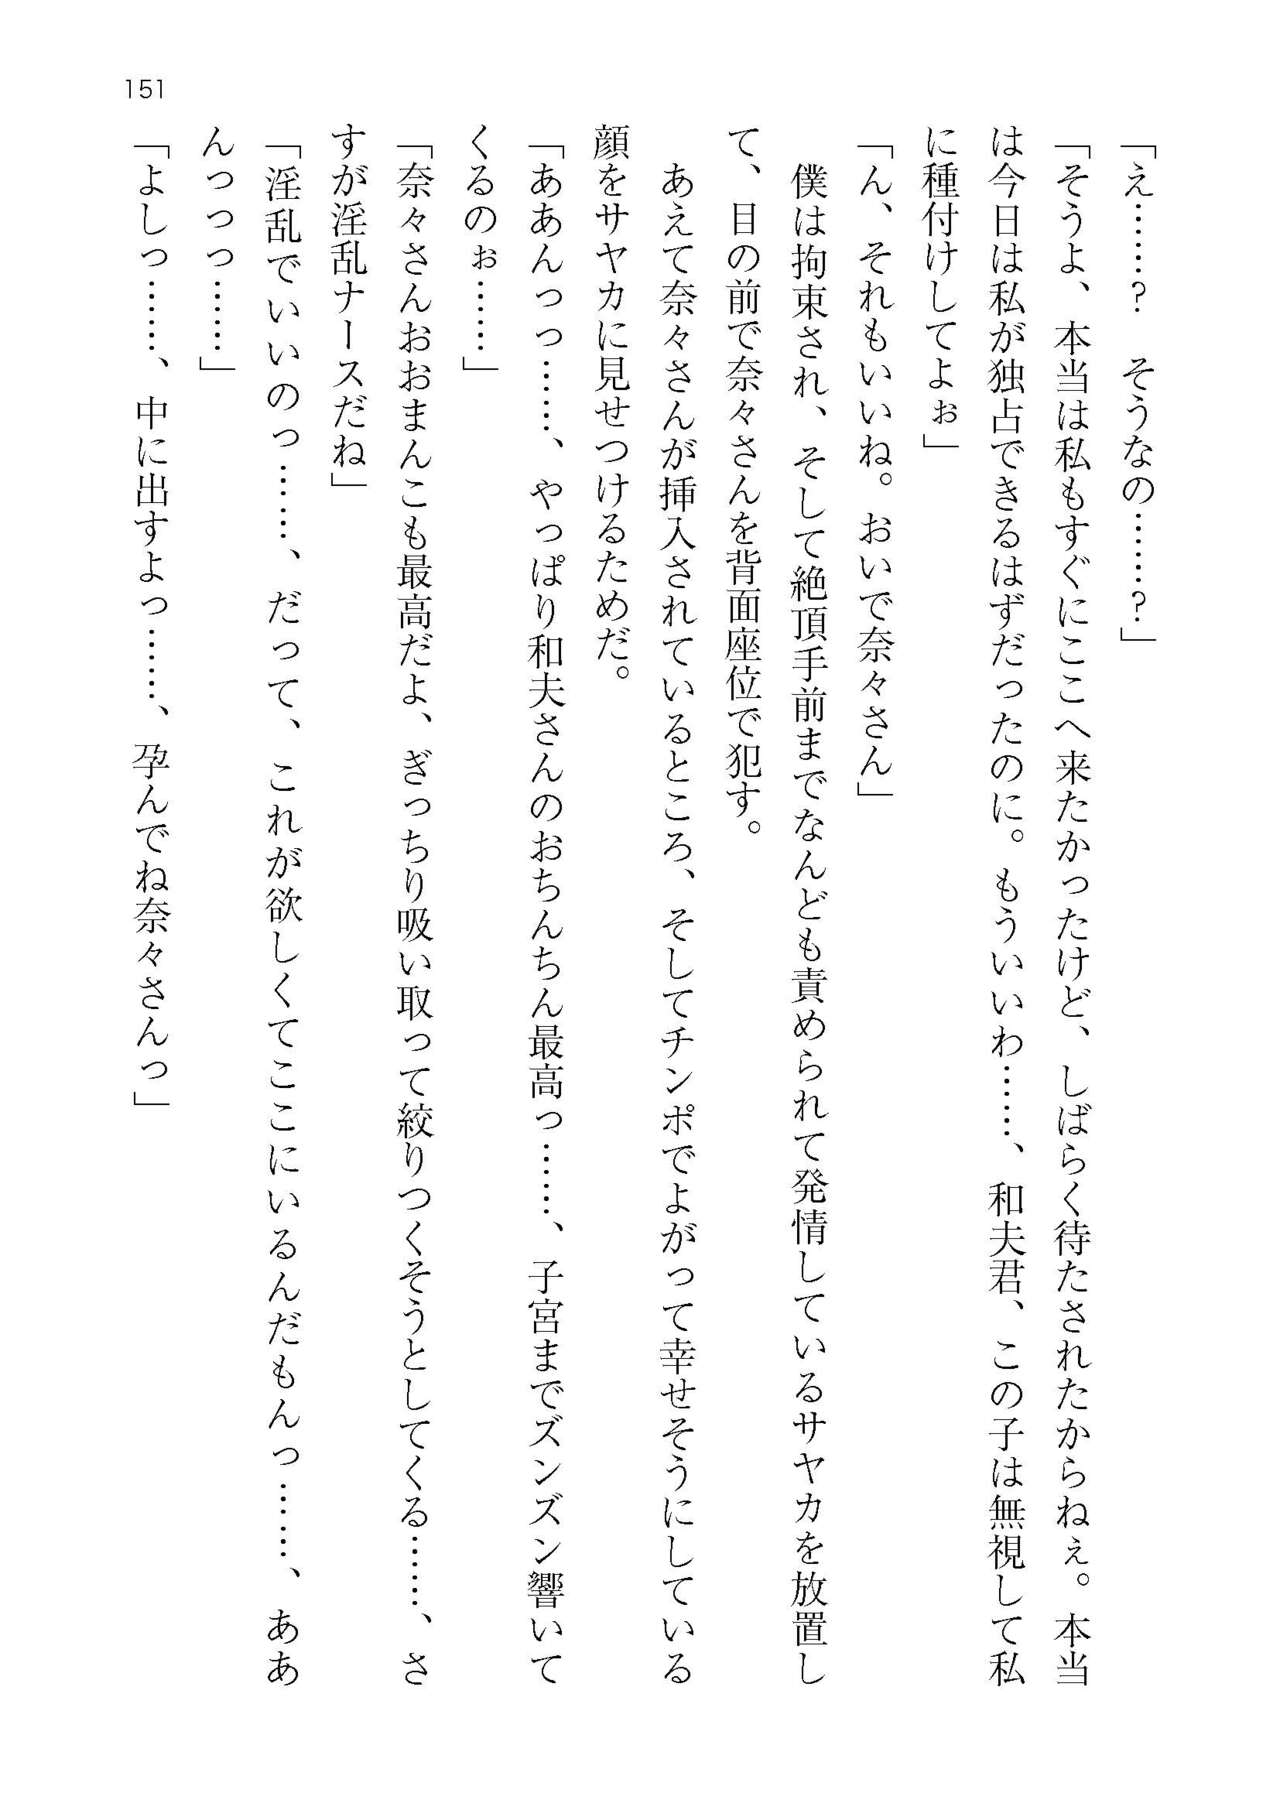 151
「え……？　そうなの……？」
「そうよ、本当は私もすぐにここへ来たかったけど、しばらく待たされたからねぇ。本当
は今日は私が独占できるはずだったのに。もういいわ……、和夫君、この子は無視して私
に種付けしてよぉ」
「ん、それもいいね。おいで奈々さん」
　僕は拘束され、そして絶頂手前までなんども責められて発情しているサヤカを放置し
て、目の前で奈々さんを背面座位で犯す。
　あえて奈々さんが挿入されているところ、そしてチンポでよがって幸せそうにしている
顔をサヤカに見せつけるためだ。
「ああんっっ……、やっぱり和夫さんのおちんちん最高っ……、子宮までズンズン響いて
くるのぉ……」
「奈々さんおおまんこも最高だよ、ぎっちり吸い取って絞りつくそうとしてくる……、さ
すが淫乱ナースだね」
「淫乱でいいのっ……、だって、これが欲しくてここにいるんだもんっ……、ああ
んっっっ……」
「よしっ……、中に出すよっ……、孕んでね奈々さんっ」